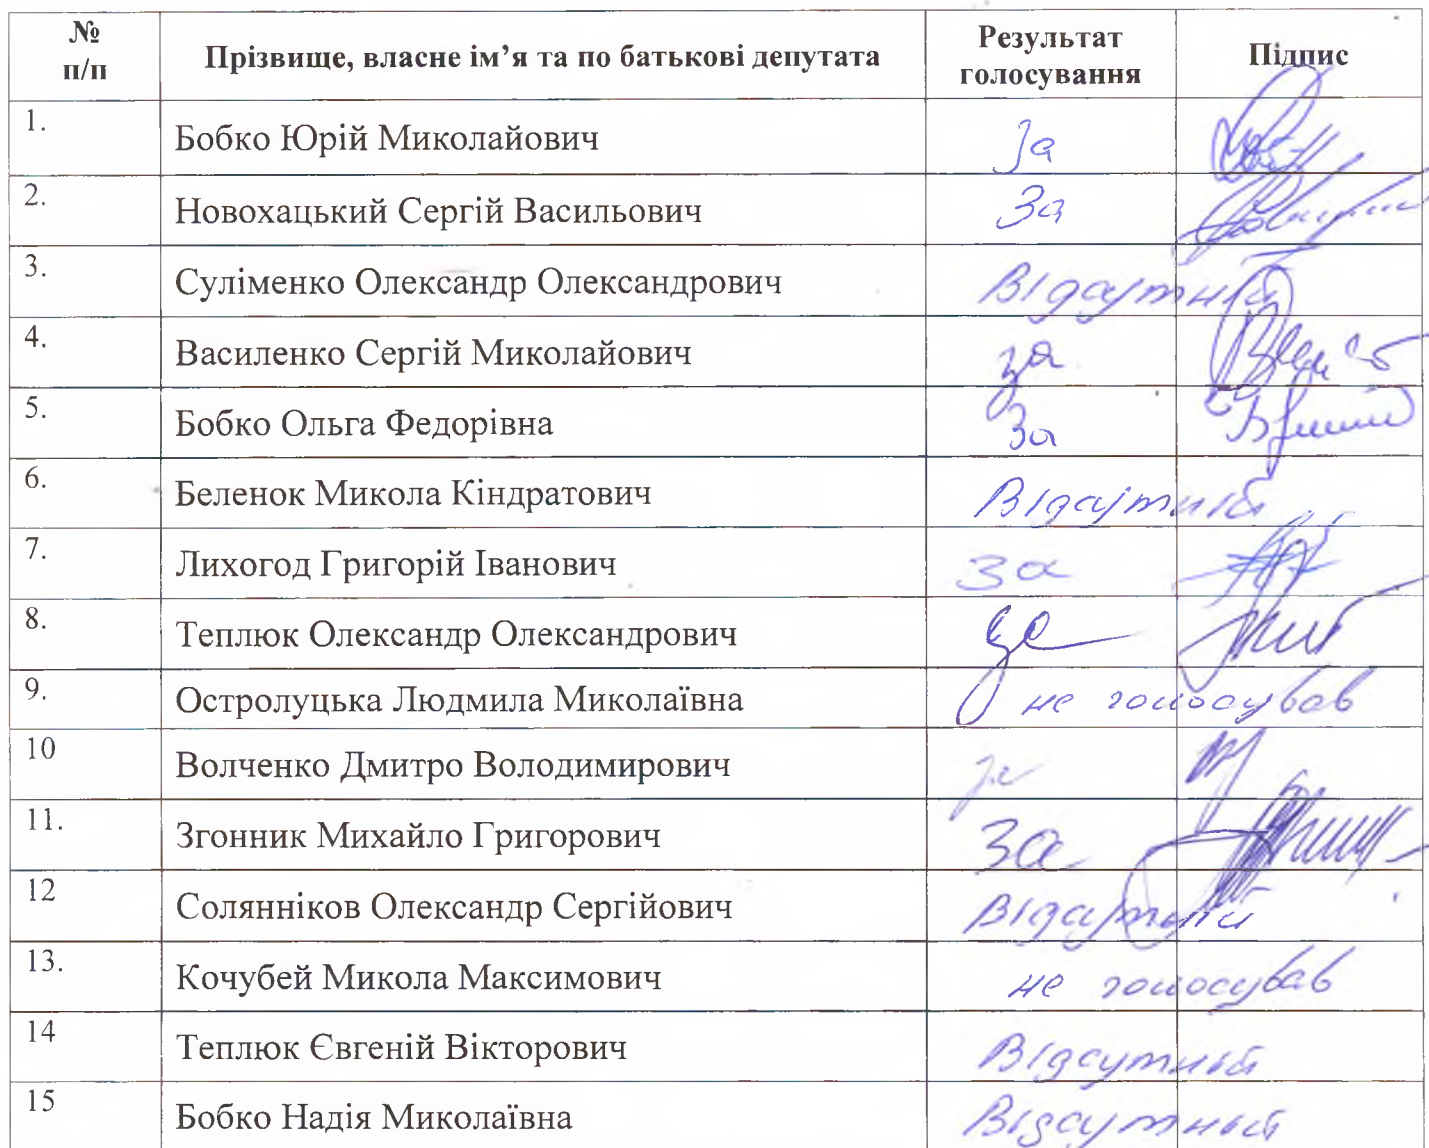 № п/п Прізвище, власне ім’я та по батькові депутата Результат голосування Підпис
1. Бобко Юрій Миколайович За
2. Новохацький Сергій Васильович За
3. Суліменко Олександр Олександрович Відсутній
4. Василенко Сергій Миколайович за
5. Бобко Ольга Федорівна За
6. Беленок Микола Кіндратович Відсутній
7. Лихогод Григорій Іванович За
8. Теплюк Олександр Олександрович за
9. Остролуцька Людмила Миколаївна не голосував
10 Волченко Дмитро Володимирович за
11. Згонник Михайло Григорович За
12 Солянніков Олександр Сергійович Відсутній
13. Кочубей Микола Максимович не голосував
14 Теплюк Євгеній Вікторович Відсутній
15 Бобко Надія Миколаївна Відсутній